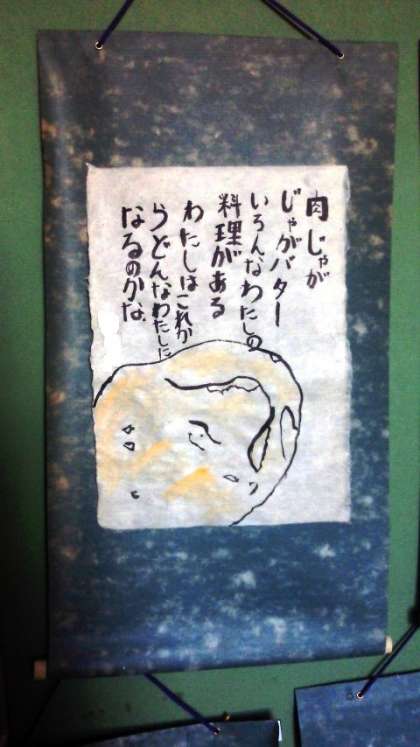 肉じゃが
じゃがバター
いろんなわたしの
料理がある
わたしはこれか
らどんなわたしに
なるのかな